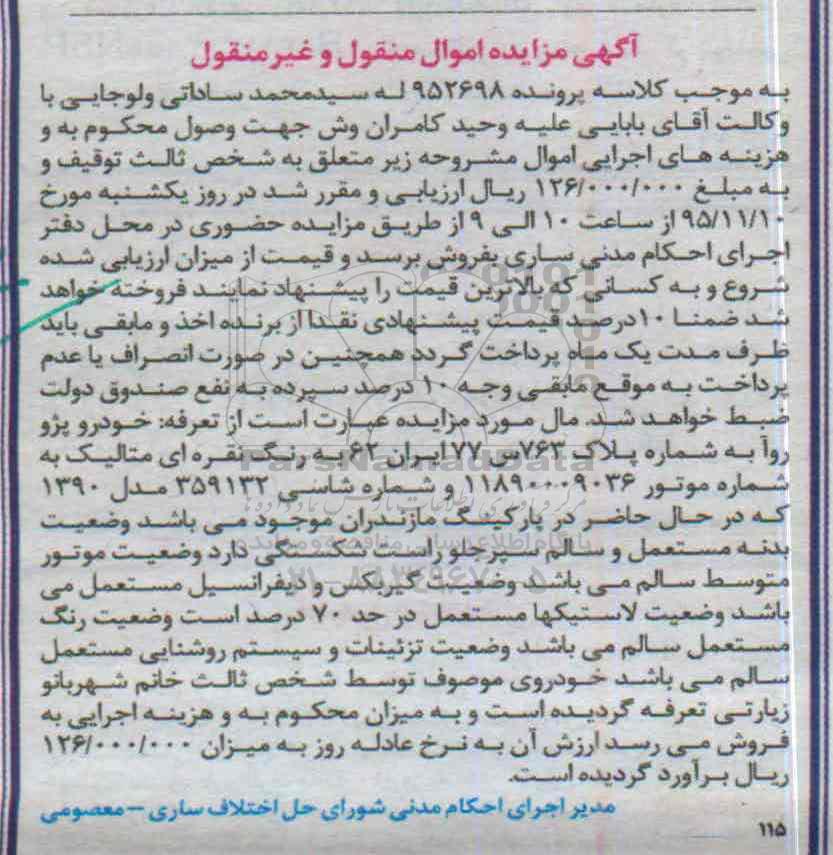 آگهی مزایده اموال منقول و غیر منقول
به موجب کلاسه پرونده ۹۵۲۶۹۸ له سیدمحمد ساداتی ولوجایی با
وکالت آقای بابایی علیه وحید کامران وش جهت وصول محکوم به و
هزینه های اجرایی اموال مشروحه زیر متعلق به شخص ثالث توقیف و
به مبلغ ۱۲۶/۰۰۰/۰۰۰ ریال ارزیابی و مقرر شد در روز یکشنبه مورخ
۹۵/۱۱/۱۰ از ساعت ۱۰ الی ۹ از طریق مزایده حضوری در محل دفتر
اجرای احکام مدنی ساری بفروش برسد و قیمت از میزان ارزیابی شده
شروع و به کسانی که بالاترین قیمت را پیشنهاد نمایند فروخته خواهد
شد ضمنا ۱۰درصد قیمت پیشنهادی نقدا از برنده اخذ و مابقی باید
ظرف مدت یک ماه پرداخت گردد همچنین در صورت انصراف یا عدم
پرداخت به موقع مابقی وجه ۱۰ درصد سپرده به نفع صندوق دولت
ضبط خواهد شد. مال مورد مزایده عبارت است از تعرفه: خودرو پژو
روآ به شماره پلاک ۷۶۳س۷۷ ایران ۶۲ به رنگ نقره ای متالیک به
شماره موتور ۱۱۸۹۰۰۰۹۰۳۶ و شماره شاسی ۳۵۹۱۳۲ مدل ۱۳۹۰
که در حال حاضر در پارکینگ مازندران موجود می باشد وضعیت
بدنه مستعمل و سالم سپرجلو راست شکستگی دارد وضعیت موتور
متوسط سالم می باشد وضعیت گیربکس و دیفرانسیل مستعمل می
باشد وضعیت لاستیکها مستعمل در حد ۷۰ درصد است وضعیت رنگ
مستعمل سالم می باشد وضعیت تزئینات و سیستم روشنایی مستعمل
سالم می باشد خودروی موصوف توسط شخص ثالث خانم شهربانو
زیارتی تعرفه گردیده است و به میزان محکوم به و هزینه اجرایی به
فروش می رسد ارزش آن به نرخ عادله روز به میزان ۱۲۶/۰۰۰/۰۰۰
ریال برآورد گردیده است.
مدیر اجرای احکام مدنی شورای حل اختلاف ساری – معصومی
۱۱۵
ParsNamadData